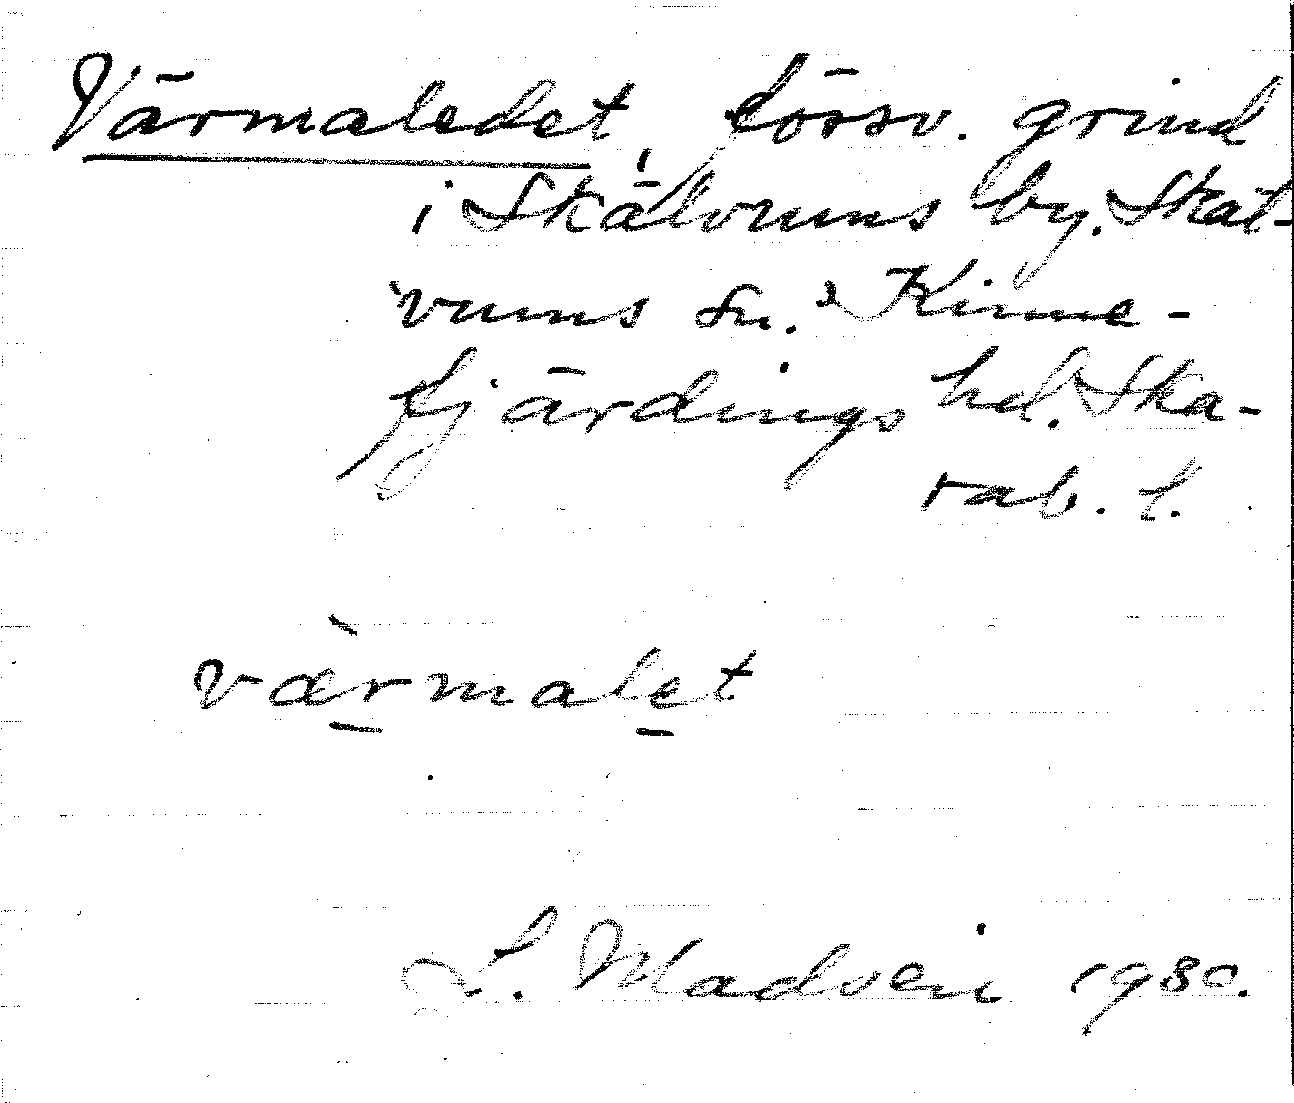 Värmaledet, försv. grind
i Skälvums by. Skäl-
vums sn. Kinne-
fjärdings hd. Ska-
rab. l.
værmalet
L. Madsén 1930.